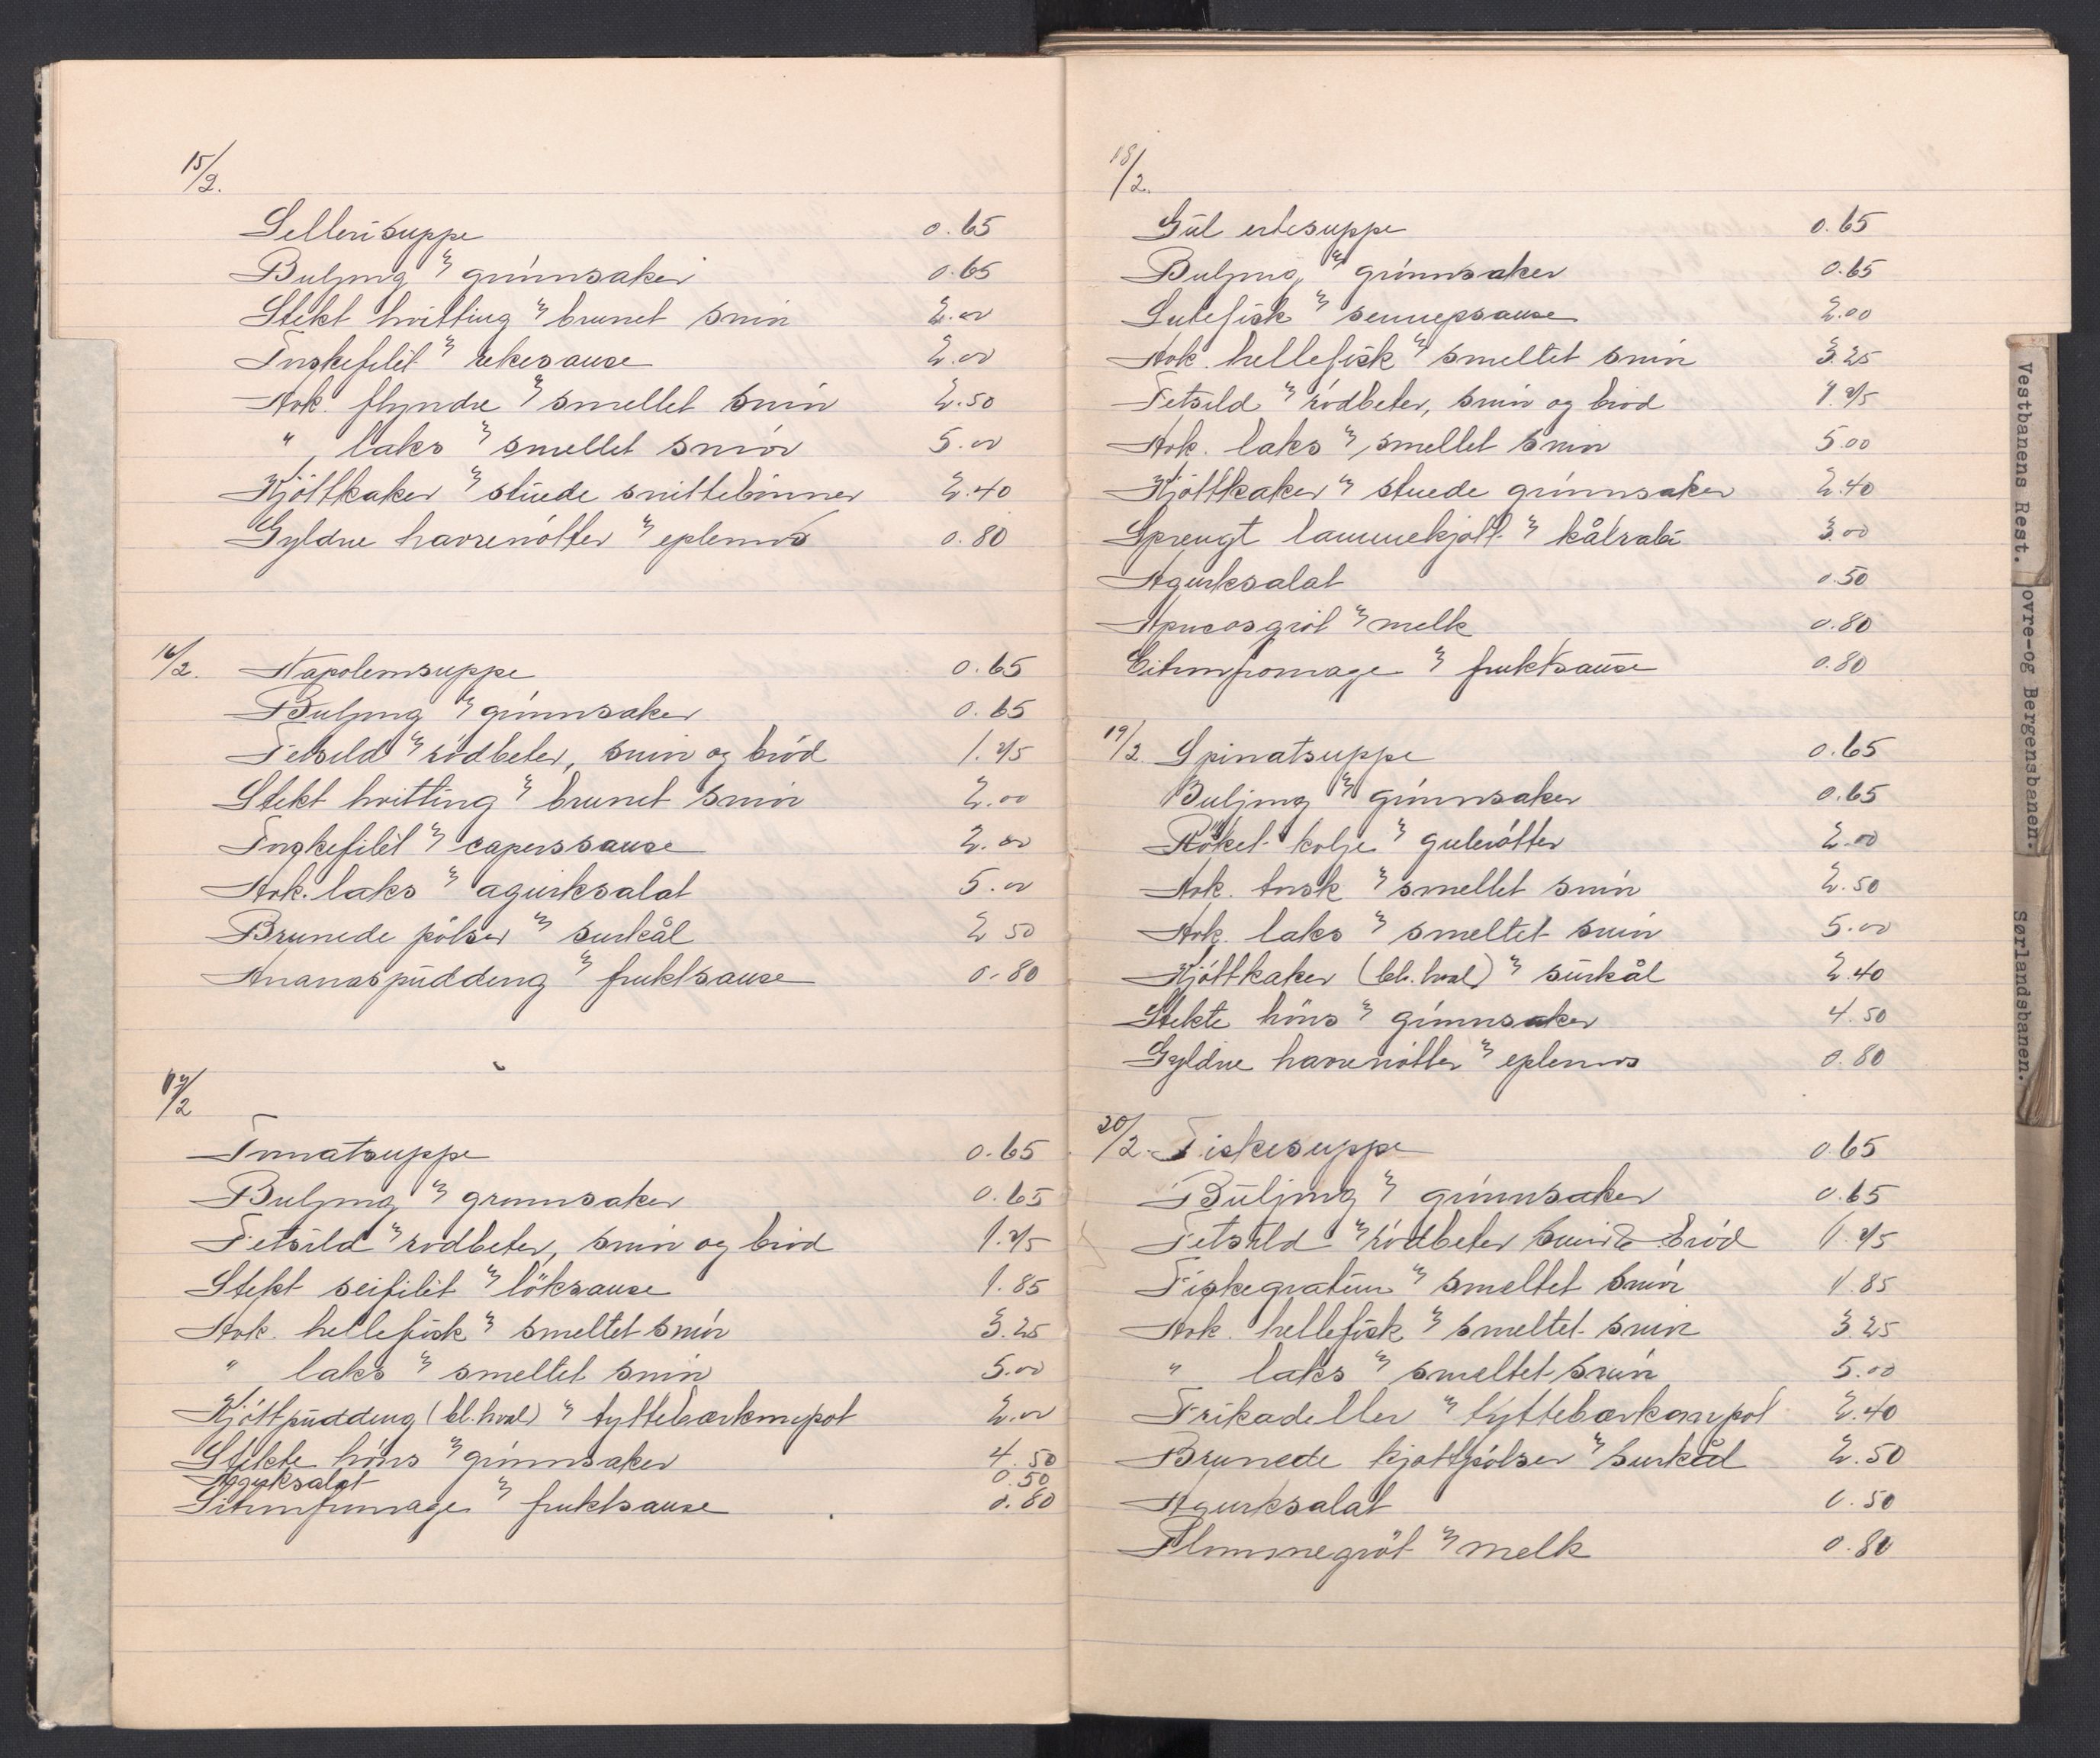 15/2.
Sellerisuppe 0.65
Buljong m grönnsaker 0.65
Stekt hvitting m brunet smör 2.00
Torskefilet m rekesause 2.00
Kok. flyndre m smeltet smör 2.50
" laks m smeltet smör 5.00
Kjöttkaker m stuede snittebönner 2.40
Gyldne havrenötter m eplemos 0.80
16/2. Napoleonsuppe 0.65
Buljong m grönnsaker 0.65
Fetsild m rödbeter, smör og bröd 1.75
Stekt hvitting m brunet smör 2.00
Torskefilet m caperssause 2.00
Kok. laks m agurksalat 5.00
Brunede pölser m surkål 2 50
Ananaspudding m fruktsause 0.80
17/2
Tomatsuppe 0.65
Buljong m grönnsaker 0.65
Fetsild m rödbeter, smör og bröd 1.75
Stekt seifilet m löksause 1.85
Kok. hellefisk m smeltet smör 3.25
" laks m smeltet smör 5.00
Kjöttpudding (bl. hval) m tyttebærkompot 2.00
Stekte höns m grönnsaker 4.50
Agurksalat 0.50
Sitronfromage m fruktsause 0.80
18/2.
Gul ertesuppe 0.65
Buljong m grönnsaker 0.65
Lutefisk m sennepsause 2.00
Kok. hellefisk m smeltet smör 3.25
Fetsild m rödbeter, smör og bröd 1.75
Kok. laks m smeltet smör 5.00
Kjöttkaker m stuede grönnsaker 2.40
Sprengt lammekjött m kålrabi 3.00
Agurksalat 0.50
Apricosgröt m melk 0.80
Citronfromage m fruktsause 0.80
19/2. Spinatsuppe 0.65
Buljong m grönnsaker 0.65
Röket kolje m gulerötter 2.00
Kok. torsk m smeltet smör 2.50
Kok. laks m smeltet smör 5.00
Kjöttkaker (bl. hval) m surkål 2.40
Stekte höns m grönnsaker 4.50
Gyldne havrenötter m eplemos 0.80
20/2. Fiskesuppe 0.65
Buljong m grönnsaker 0.65
Fetsild m rödbeter smör & bröd 1.75
Fiskegrateng m smeltet smör 1.85
Kok. hellefisk m smeltet smör 3.25
" laks m smeltet smör 5.00
Frikadeller m tyttebærkompot 2.40
Brunede kjöttpölser m surkål 2.50
Agurksalat 0.50
Plommegröt m melk 0.80
Vestbanens Rest.
ovre-og Bergensbanen.
Sørlandsbanen.